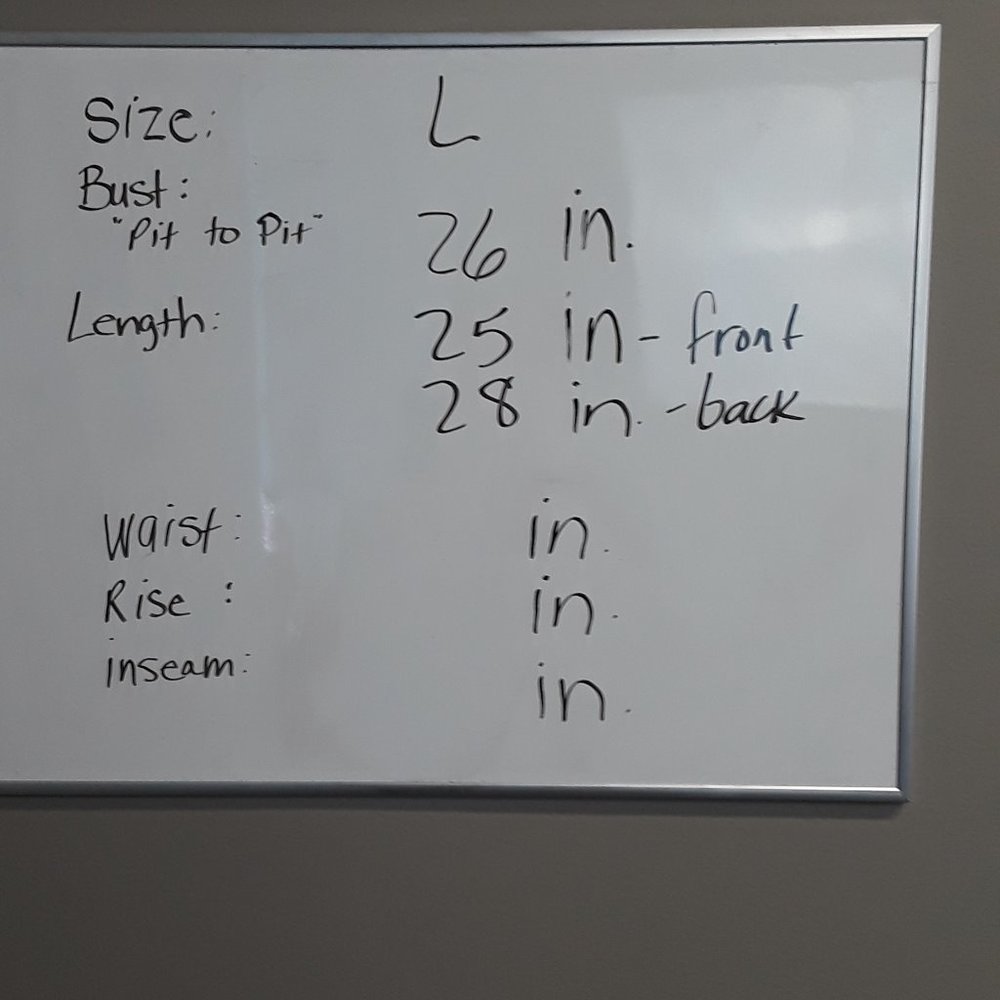 Size: L
Bust:
"Pit to Pit" 26 in.
Length: 25 in - front
28 in. - back
Waist: in.
Rise : in.
inseam: in.